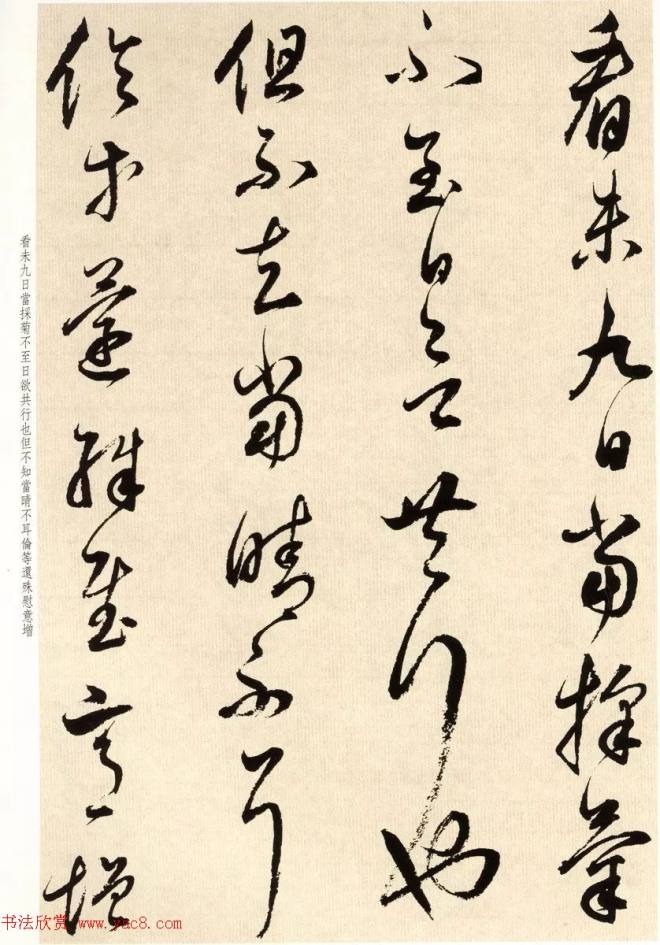 看未九日當採菊
不至日欲共行也
但不知當晴不耳
倫等還殊慰意增
看未九日當採菊不至日欲共行也但不知當晴不耳倫等還殊慰意增
书法欣赏 www.yac8.com